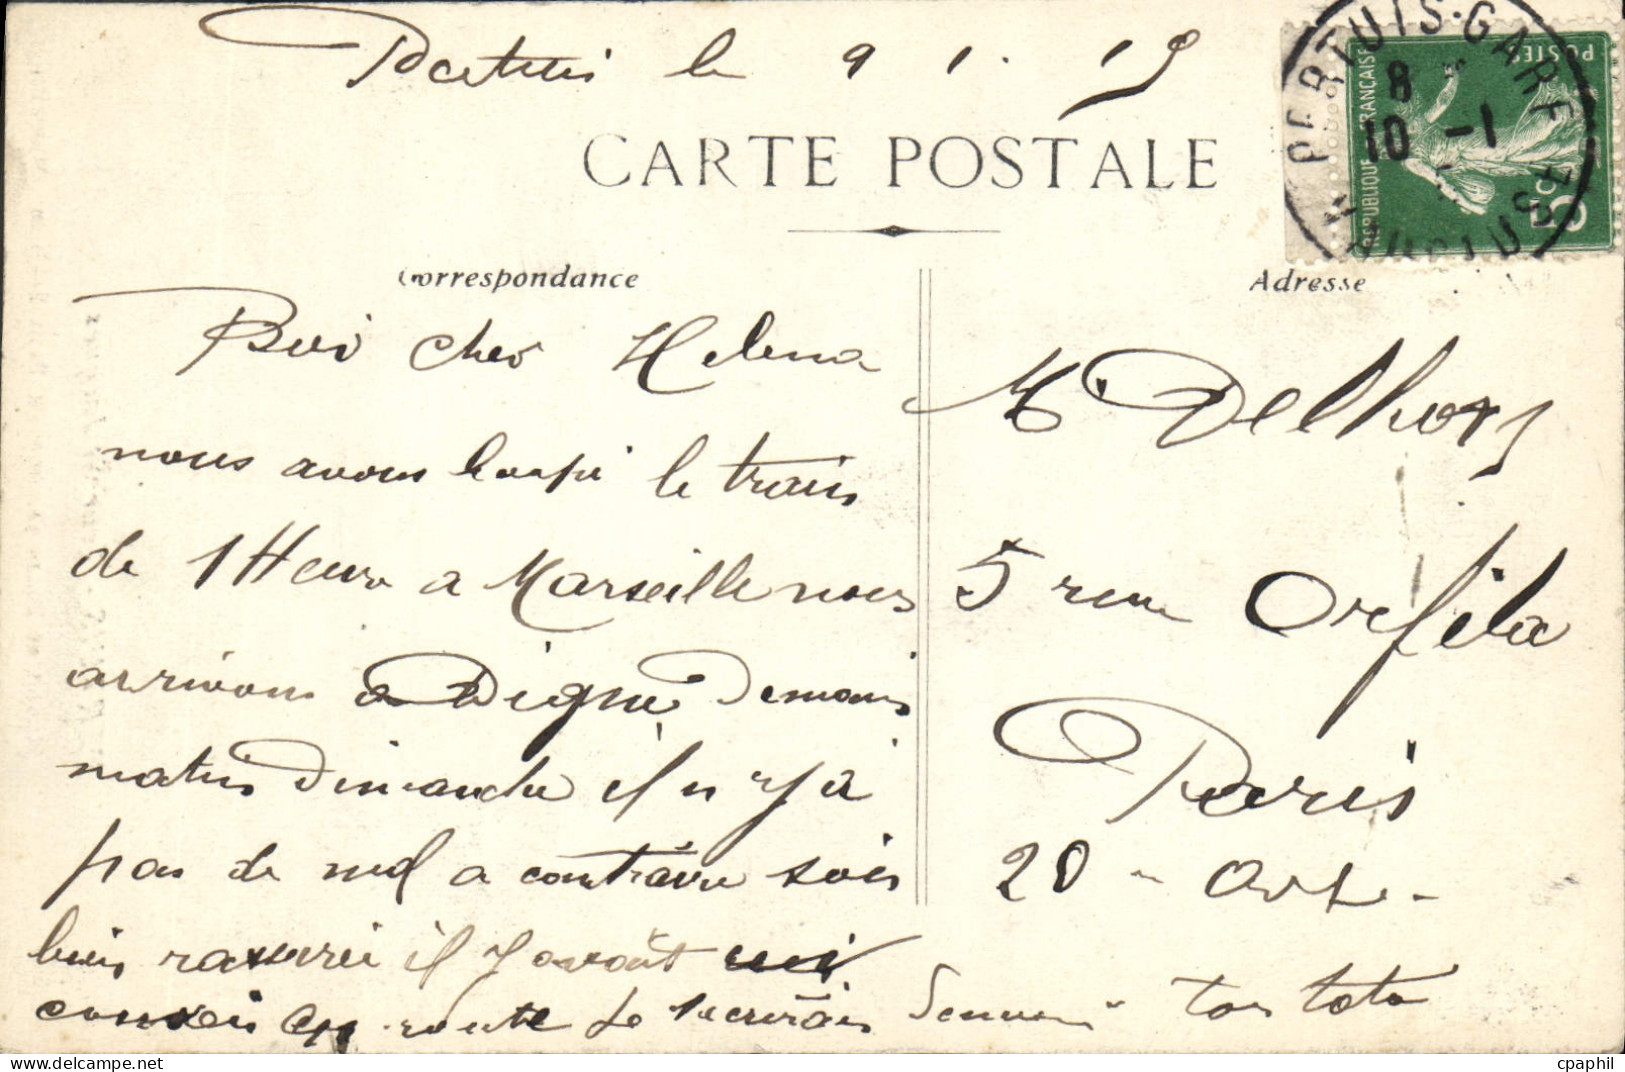 Pertuis le 9 1. 19
CARTE POSTALE
PERTUIS-GARE
8
10 -1
VAUCLUSE
REPUBLIQUE FRANÇAISE
POSTES
5c
Correspondance
Adresse
Boi cher Helena
nous avons loupé le train
de 1 Heure a Marseille nous
arrivons a Digne Demain
matin Dimanche il n y a
pas de mal a contraire sois
bien rassurei il y
en route Je Demain ton toto
Mr Delhors
5 rue Orfila
Paris
20 - Art -
cpaphil